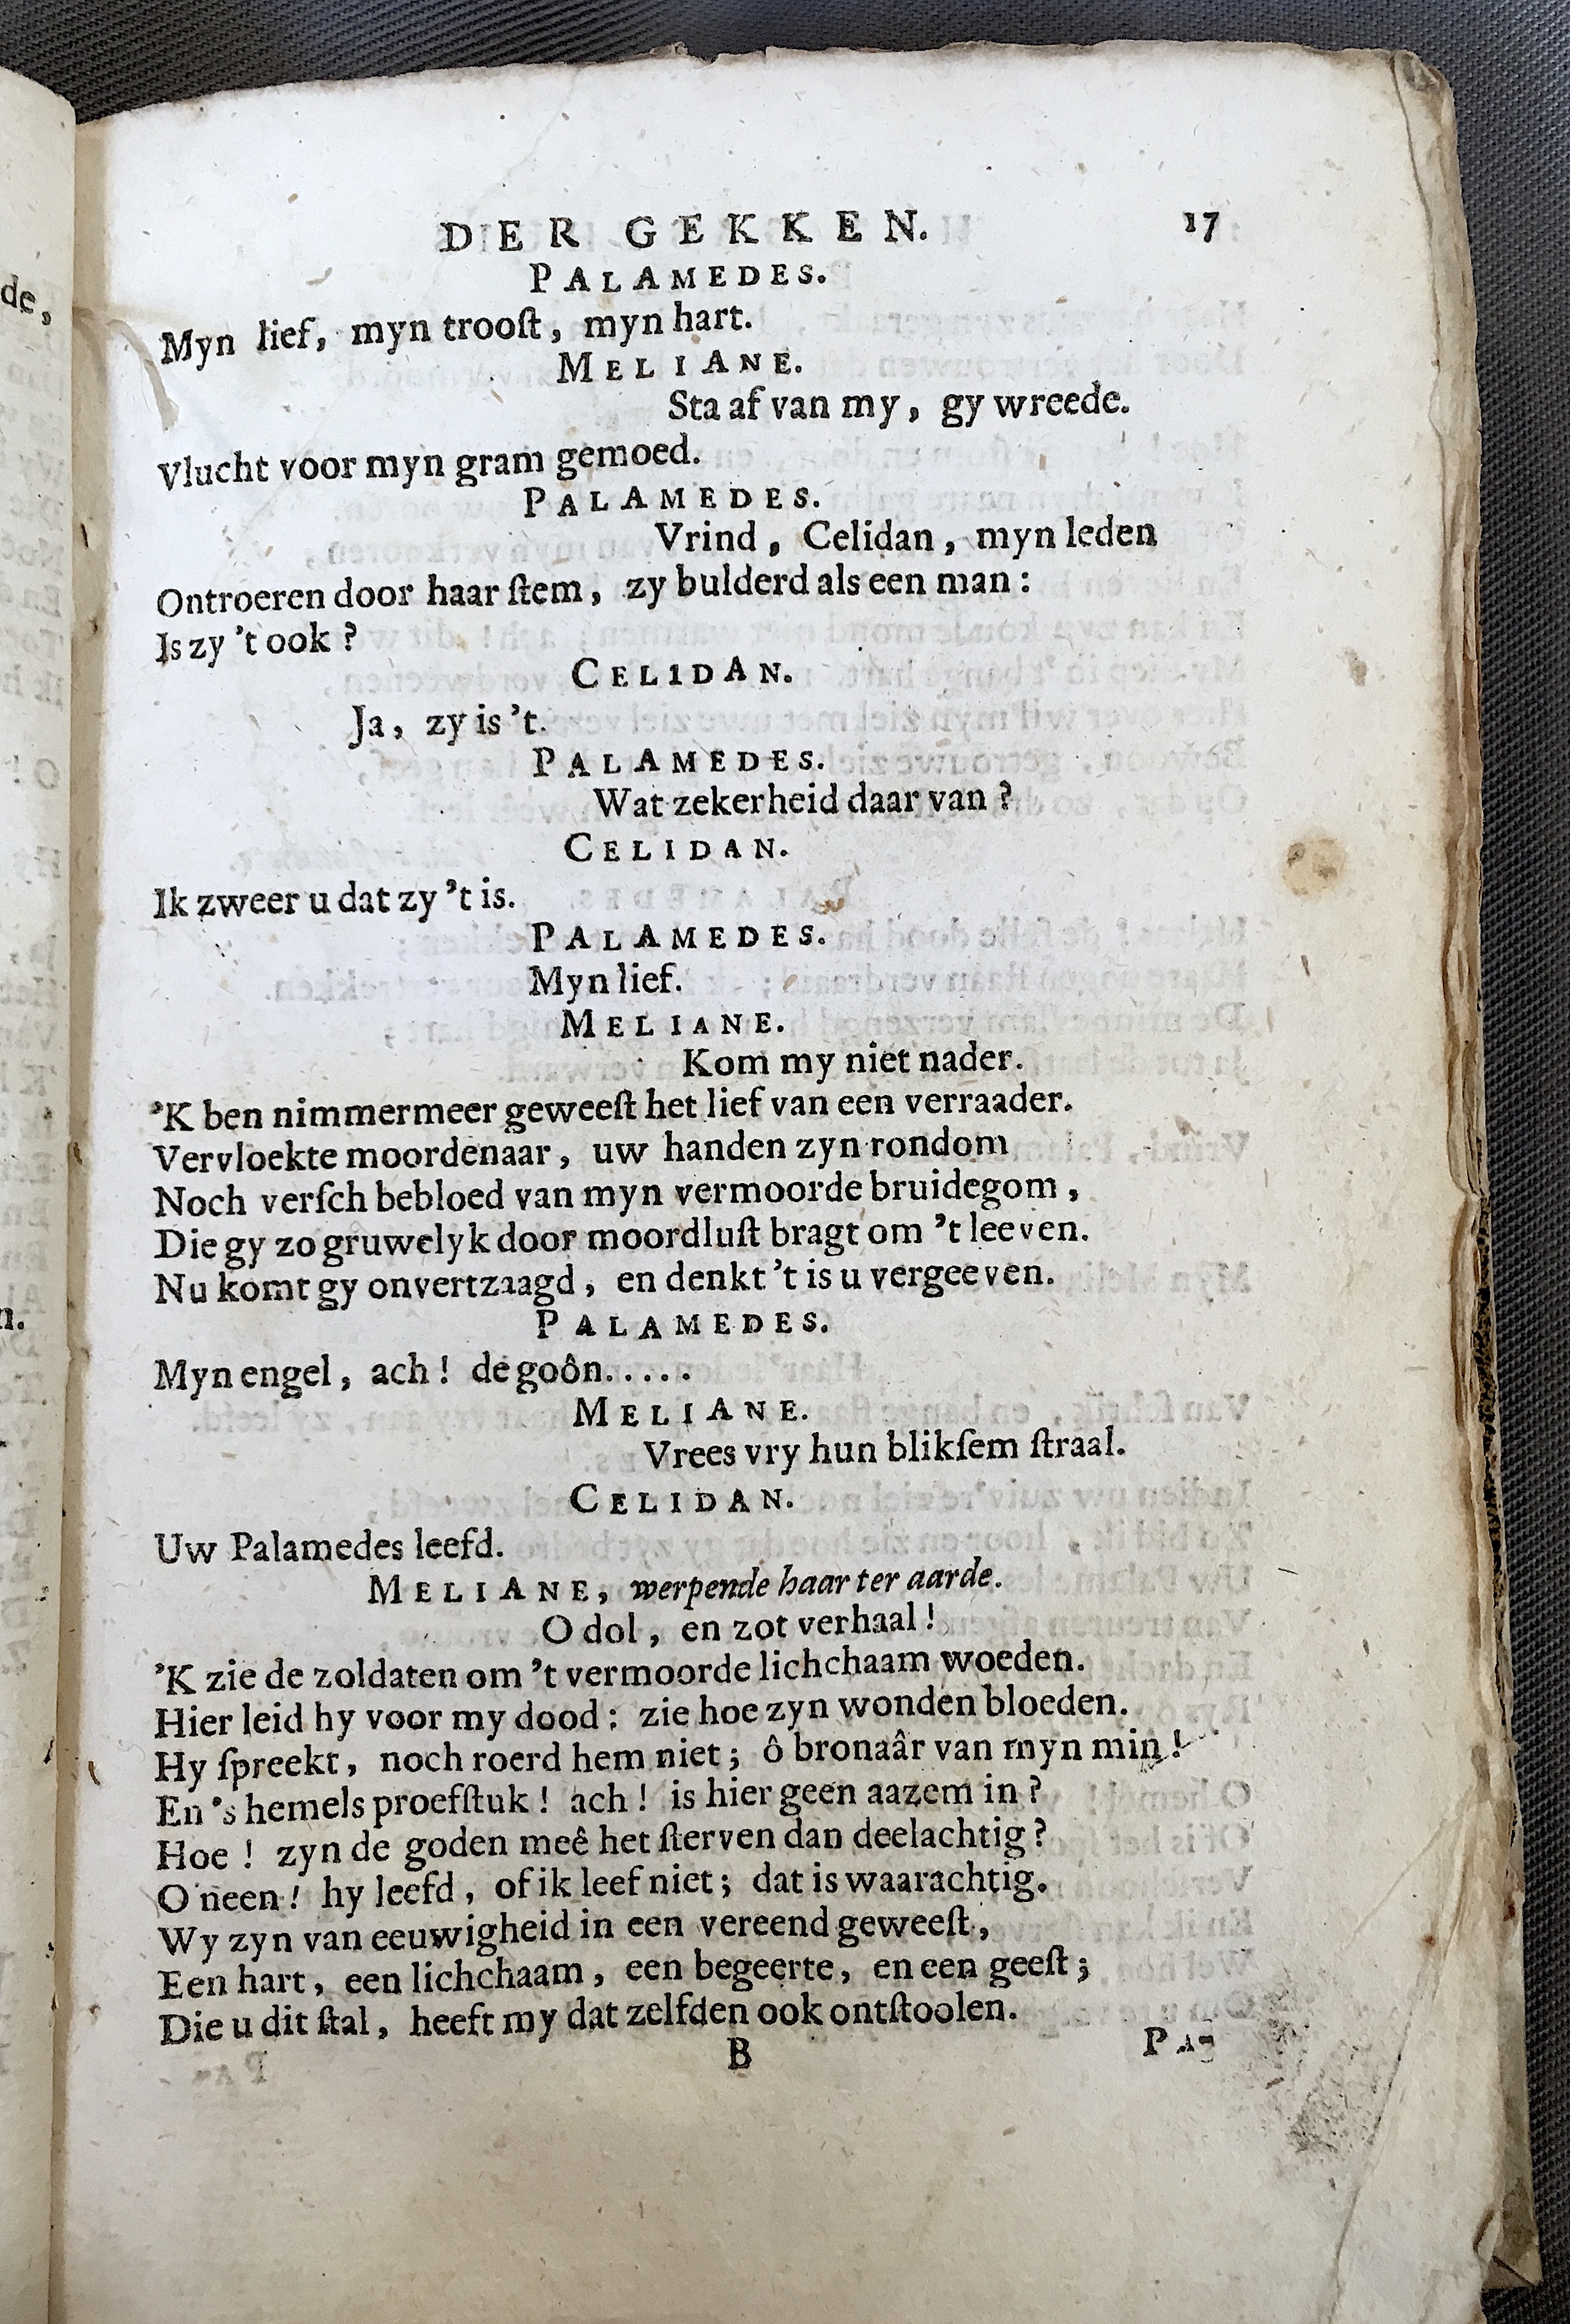 DER GEKKEN. 17
PALAMEDES.
Myn lief, myn trooſt, myn hart.
MELIANE.
Sta af van my, gy wreede.
Vlucht voor myn gram gemoed.
PALAMEDES.
Vrind, Celidan, myn leden
Ontroeren door haar ſtem, zy bulderd als een man:
Is zy 't ook?
CELIDAN.
Ja, zy is 't.
PALAMEDES.
Wat zekerheid daar van?
CELIDAN.
Ik zweer u dat zy 't is.
PALAMEDES.
Myn lief.
MELIANE.
Kom my niet nader.
'K ben nimmermeer geweeſt het lief van een verraader.
Vervloekte moordenaar, uw handen zyn rondom
Noch verſch bebloed van myn vermoorde bruidegom,
Die gy zo gruwelyk door moordluſt bragt om 't leeven.
Nu komt gy onvertzaagd, en denkt 't is u vergeeven.
PALAMEDES.
Myn engel, ach! de goôn.....
MELIANE.
Vrees vry hun blikſem ſtraal.
CELIDAN.
Uw Palamedes leefd.
MELIANE, werpende haar ter aarde.
O dol, en zot verhaal!
'K zie de zoldaten om 't vermoorde lichchaam woeden.
Hier leid hy voor my dood: zie hoe zyn wonden bloeden.
Hy ſpreekt, noch roerd hem niet; ô bronaâr van myn min!
En 's hemels proefſtuk! ach! is hier geen aazem in?
Hoe! zyn de goden meê het ſterven dan deelachtig?
O neen! hy leefd, of ik leef niet; dat is waarachtig.
Wy zyn van eeuwigheid in een vereend geweeſt,
Een hart, een lichchaam, een begeerte, en een geeſt;
Die u dit ſtal, heeft my dat zelfden ook ontſtoolen.
B
de,
O!
n.